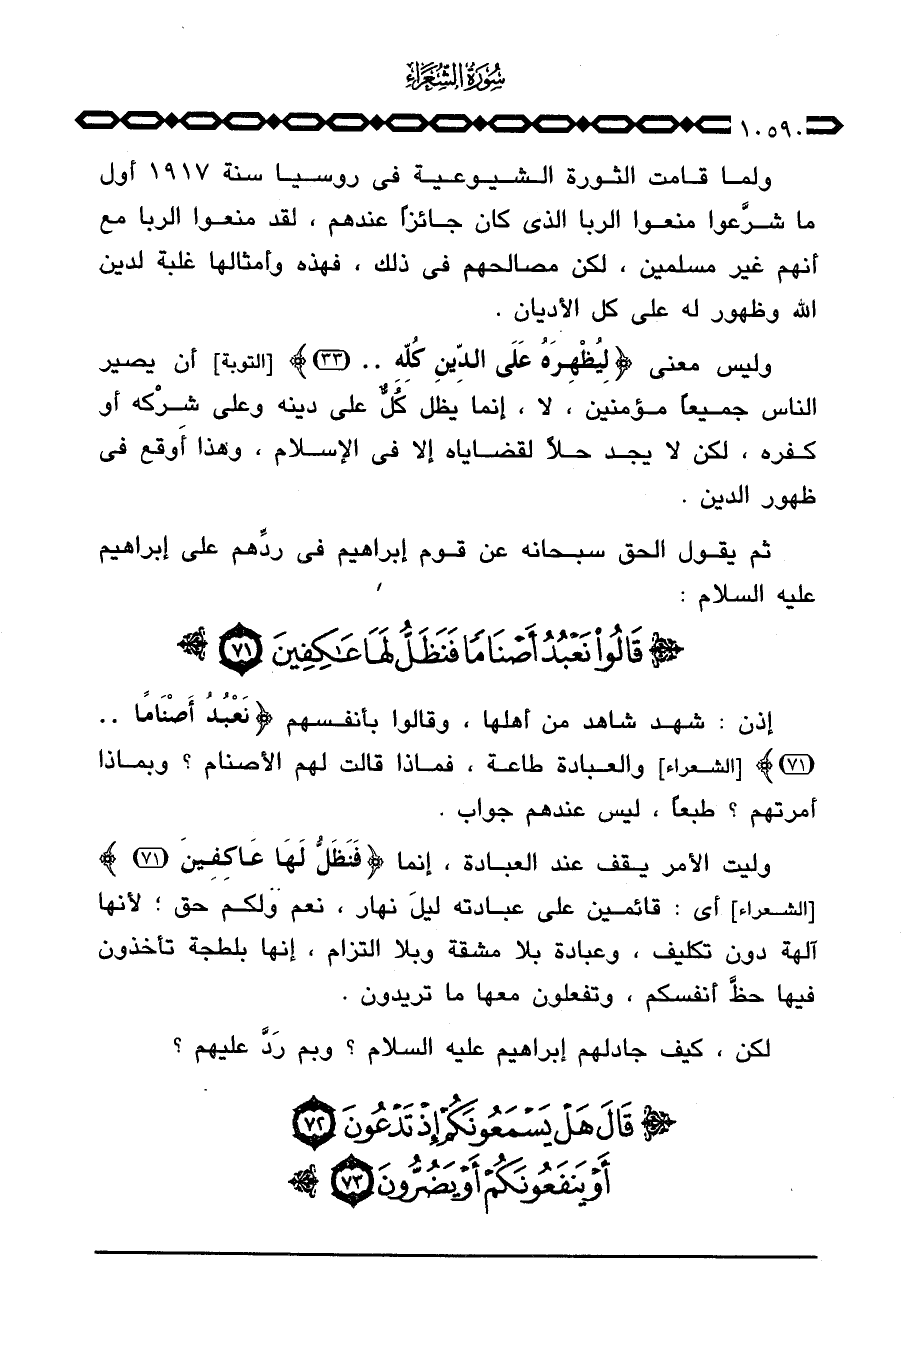 سُورَةُ الشُّعَرَاءِ
١٠٥٩٠
ولمـا قـامت الثورة الـشـيـوعـيـة فى روسـيـا سنة ١٩١٧ أول
ما شـرَّعوا منعـوا الربا الذى كان جـائزاً عندهم ، لقد منعـوا الربا مع
أنهم غير مسلمين ، لكن مصالحهم فى ذلك ، فهذه وأمثالها غلبة لدين
الله وظهور له على كل الأديان .
وليس معنى ﴿ لِيُظْهِرَهُ عَلَى الدِّينِ كُلِّهِ .. (٣٣) ﴾ [التوبة] أن يصير
الناس جمـيعـاً مـؤمنين ، لا ، إنما يظل كُلٌّ على دينه وعلى شـرْكه أو
كـفره ، لكن لا يجـد حـلاً لقضـاياه إلا فى الإسـلام ، وهذا أَوقع فى
ظهور الدين .
ثم يقـول الحق سبـحانه عن قـوم إبراهيم فى ردِّهم على إبراهيم
عليه السلام :
﴿ قَالُوا۟ نَعْبُدُ أَصْنَامًا فَنَظَلُّ لَهَا عَـٰكِفِينَ (٧١) ﴾
إذن : شهـد شاهد من أهلها ، وقالوا بأنفـسهم ﴿ نَعْبُدُ أَصْنَامًا ..
(٧١) ﴾ [الشـعراء] والعـبـادة طاعـة ، فمـاذا قالت لهم الأصنام ؟ وبمـاذا
أمرتهم ؟ طبعاً ، ليس عندهم جواب .
وليت الأمر يـقف عند العبـادة ، إنما ﴿ فَنَظَلُّ لَهَا عَاكِفِينَ (٧١) ﴾
[الشـعراء] أى : قائمـين على عبـادته ليلَ نهار ، نعم ولكـم حق ؛ لأنها
آلهة دون تكليف ، وعبادة بلا مشقة وبلا التزام ، إنها بلطجة تأخذون
فيها حظَّ أنفسكم ، وتفعلون معها ما تريدون .
لكن ، كيف جادلهم إبراهيم عليه السلام ؟ وبم رَدَّ عليهم ؟
﴿ قَالَ هَلْ يَسْمَعُونَكُمْ إِذْ تَدْعُونَ (٧٢)
أَوْ يَنفَعُونَكُمْ أَوْ يَضُرُّونَ (٧٣) ﴾